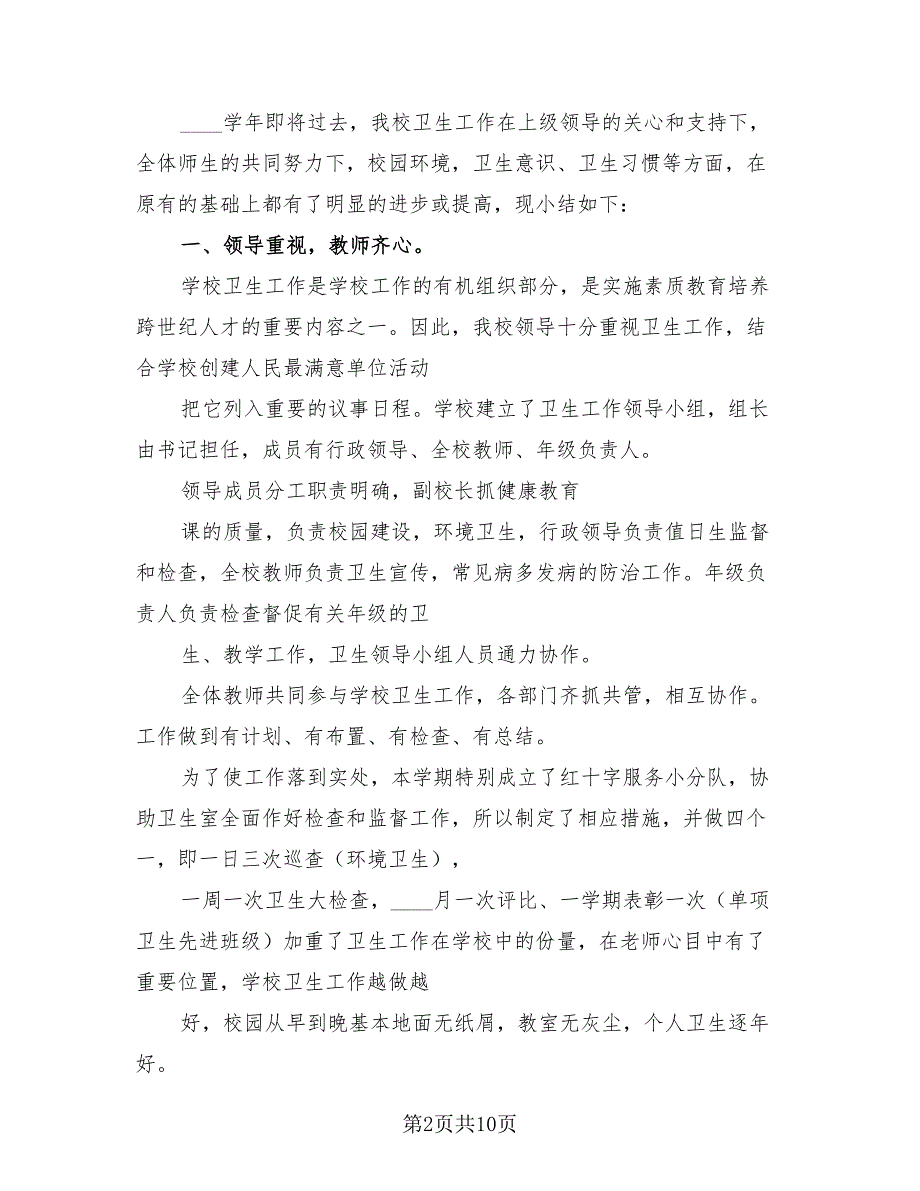 ____学年即将过去，我校卫生工作在上级领导的关心和支持下，
全体师生的共同努力下，校园环境，卫生意识、卫生习惯等方面，在
原有的基础上都有了明显的进步或提高，现小结如下：
一、领导重视，教师齐心。
学校卫生工作是学校工作的有机组织部分，是实施素质教育培养
跨世纪人才的重要内容之一。因此，我校领导十分重视卫生工作，结
合学校创建人民最满意单位活动
把它列入重要的议事日程。学校建立了卫生工作领导小组，组长
由书记担任，成员有行政领导、全校教师、年级负责人。
领导成员分工职责明确，副校长抓健康教育
课的质量，负责校园建设，环境卫生，行政领导负责值日生监督
和检查，全校教师负责卫生宣传，常见病多发病的防治工作。年级负
责人负责检查督促有关年级的卫
生、教学工作，卫生领导小组人员通力协作。
全体教师共同参与学校卫生工作，各部门齐抓共管，相互协作。
工作做到有计划、有布置、有检查、有总结。
为了使工作落到实处，本学期特别成立了红十字服务小分队，协
助卫生室全面作好检查和监督工作，所以制定了相应措施，并做四个
一，即一日三次巡查（环境卫生），
一周一次卫生大检查，____月一次评比、一学期表彰一次（单项
卫生先进班级）加重了卫生工作在学校中的份量，在老师心目中有了
重要位置，学校卫生工作越做越
好，校园从早到晚基本地面无纸屑，教室无灰尘，个人卫生逐年
好。
第2页共10页